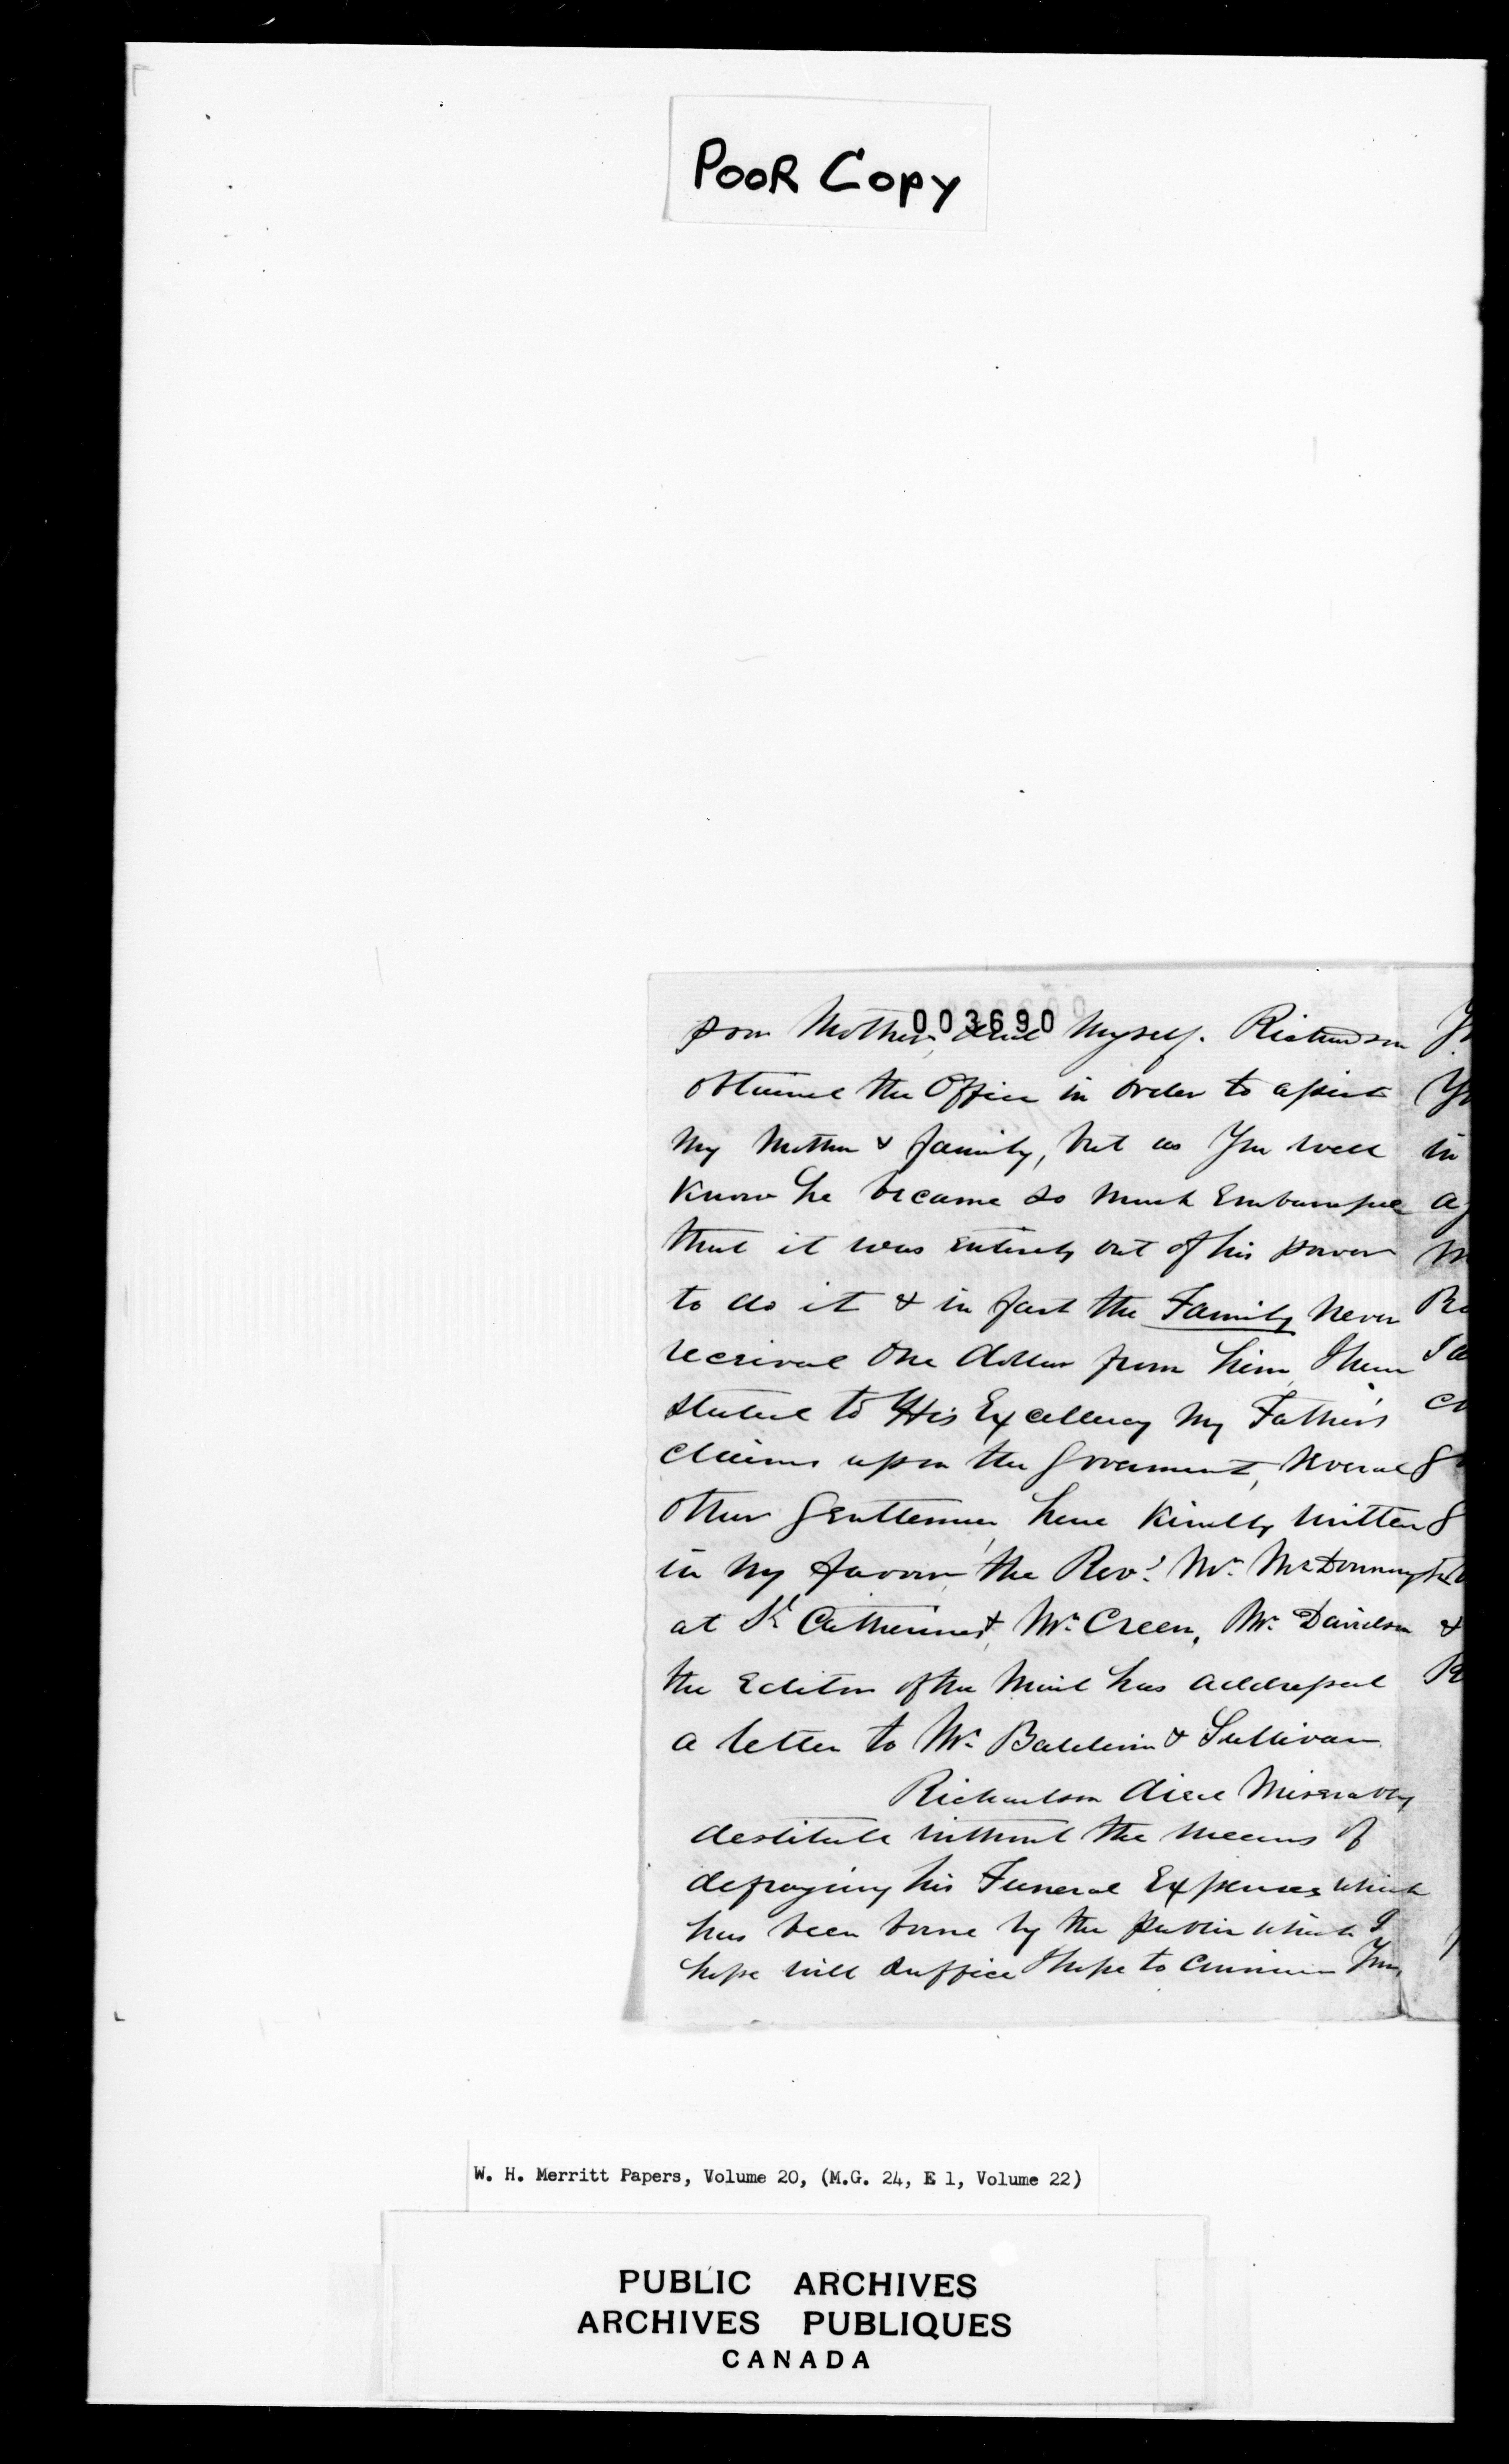 POOR COPY
003690
poor Mother, and Myself. Richardson
obtained the Office in order to assist
My Mother & family, but as You well
Know he became so much Embarrassed
that it was entirely out of his power
to do it & in fact the Family Never
received One dollar from him, I have
stated to His Excellency My Father's
claims upon the Government, Several
other Gentlemen have Kindly written
in my favour, the Revd. Mr.
at St Catherines & Mr. Creen, Mr. Davidson
the Editor of the Mail has addressed
a letter to Mr. Baldwin & Sullivan
Richardson died Miserably
destitute without the means of
defraying his Funeral Expenses which
has been borne by the public which I
hope will suffice I hope to You,
W. H. Merritt Papers, Volume 20, (M.G. 24, E 1, Volume 22)
PUBLIC ARCHIVES
ARCHIVES PUBLIQUES
CANADA